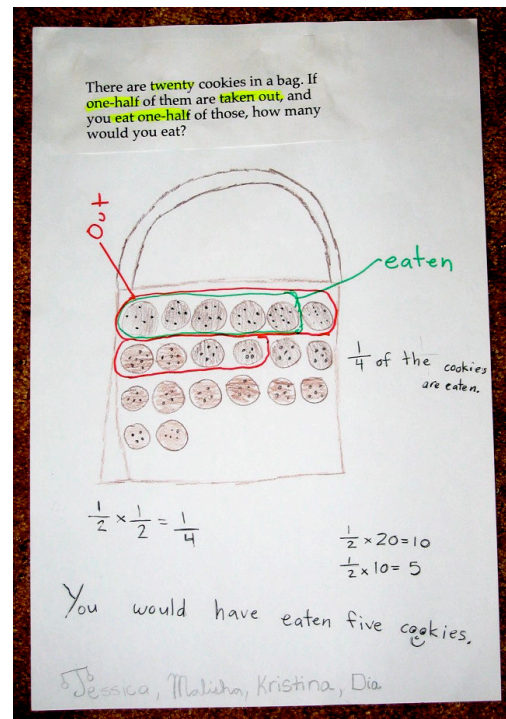 There are twenty cookies in a bag. If
one-half of them are taken out, and
you eat one-half of those, how many
would you eat?
Out
eaten
1/4 of the cookies
are eaten.
1/2 × 1/2 = 1/4
1/2 × 20 = 10
1/2 × 10 = 5
You would have eaten five cookies.
Jessica, Maliha, Kristina, Dia